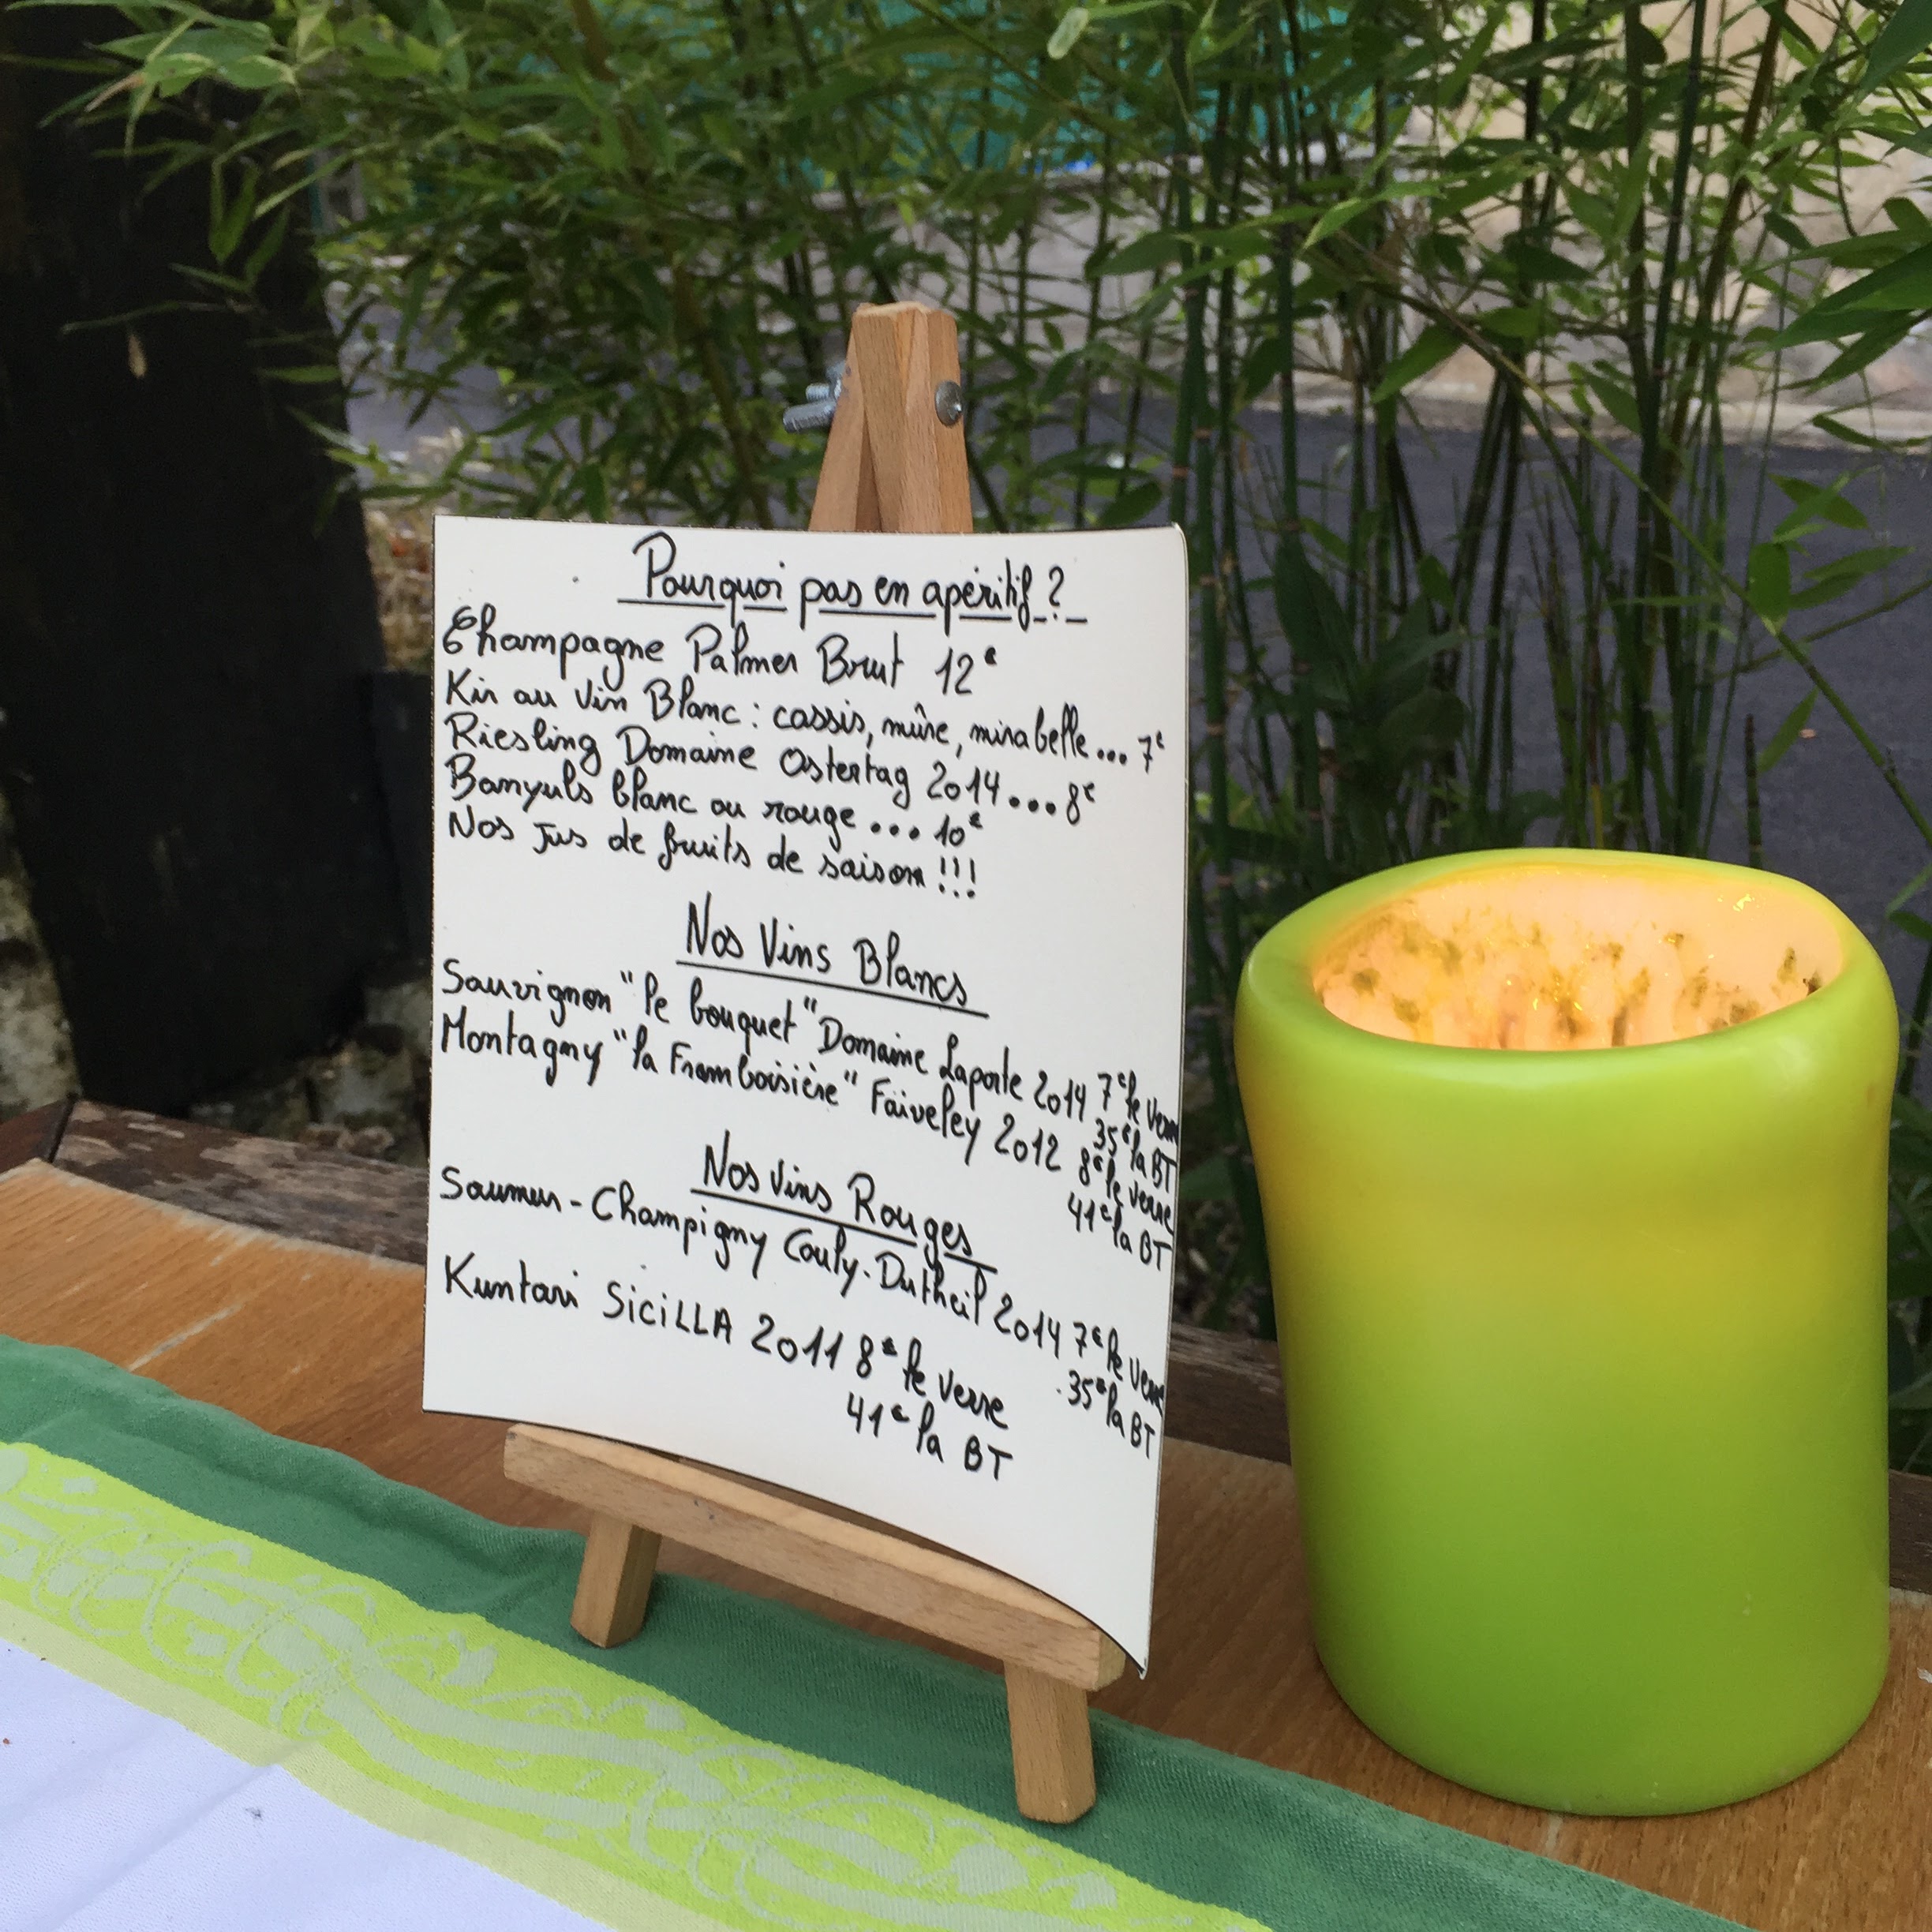 Pourquoi pas en apéritif ?
Champagne Palmer Brut 12€
Kir au Vin Blanc : cassis, mûre, mirabelle... 7€
Riesling Domaine Ostertag 2014... 8€
Banyuls blanc ou rouge... 10€
Nos Jus de fruits de saison !!!
Nos Vins Blancs
Sauvignon "le bouquet" Domaine Laporte 2014 7€ le verre
35€ la BT
Montagny "la Framboisière" Faiveley 2012 8€ le verre
41€ la BT
Nos Vins Rouges
Saumur-Champigny Couly-Dutheil 2014 7€ le verre
35€ la BT
Kuntari SiciLLA 2011 8€ le verre
41€ la BT